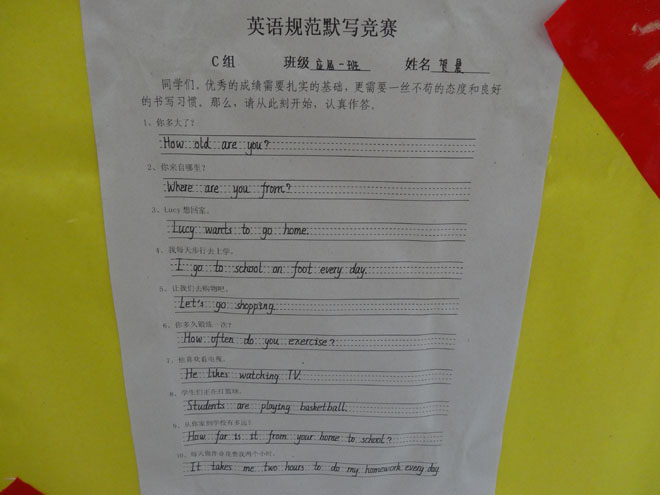 英语规范默写竞赛
C组 班级 应届一班 姓名 翌晨
同学们、优秀的成绩需要扎实的基础，更需要一丝不苟的态度和良好
的书写习惯。那么，请从此刻开始，认真作答。
1、你多大了？
How old are you?
2、你来自哪里？
Where are you from?
3、Lucy想回家。
Lucy wants to go home.
4、我每天步行去上学。
I go to school on foot every day.
5、让我们去购物吧。
Let's go shopping.
6、你多久锻炼一次？
How often do you exercise?
7、他喜欢看电视。
He likes watching TV.
8、学生们正在打篮球。
Students are playing basketball.
9、从你家到学校有多远？
How far is it from your home to school?
10、每天做作业花费我两个小时。
It takes me two hours to do my homework every day